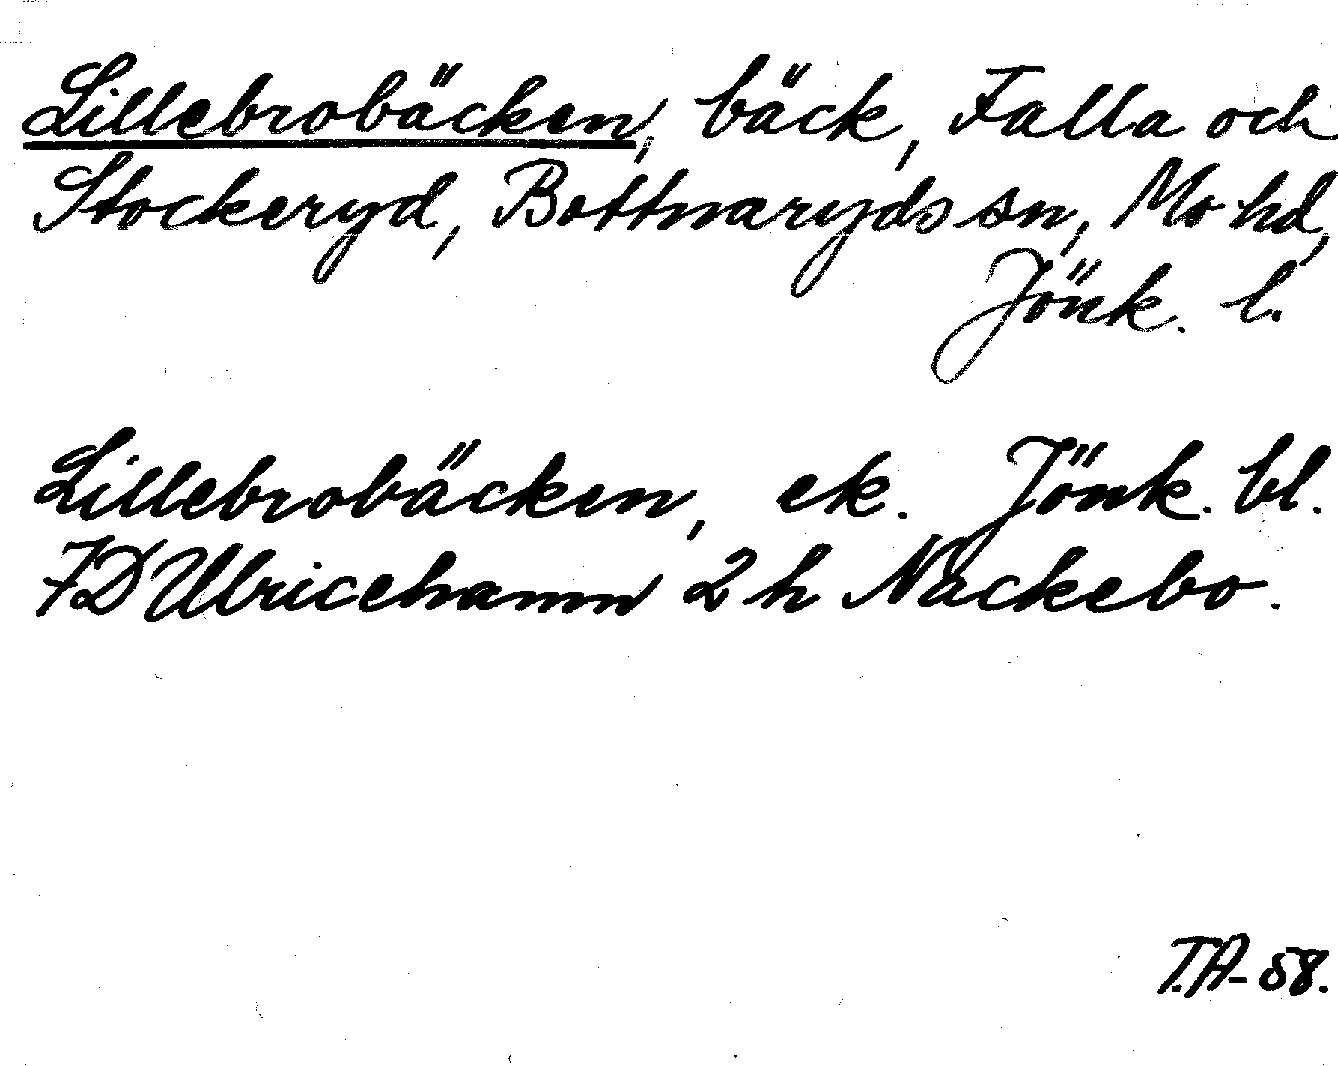 Lillebrobäcken, bäck, Falla och
Stockeryd, Bottnaryds sn, Mo hd,
Jönk. l.
Lillebrobäcken, ek. Jönk. bl.
7D Ulricehamn 2 h Nackebo.
T.A-58.